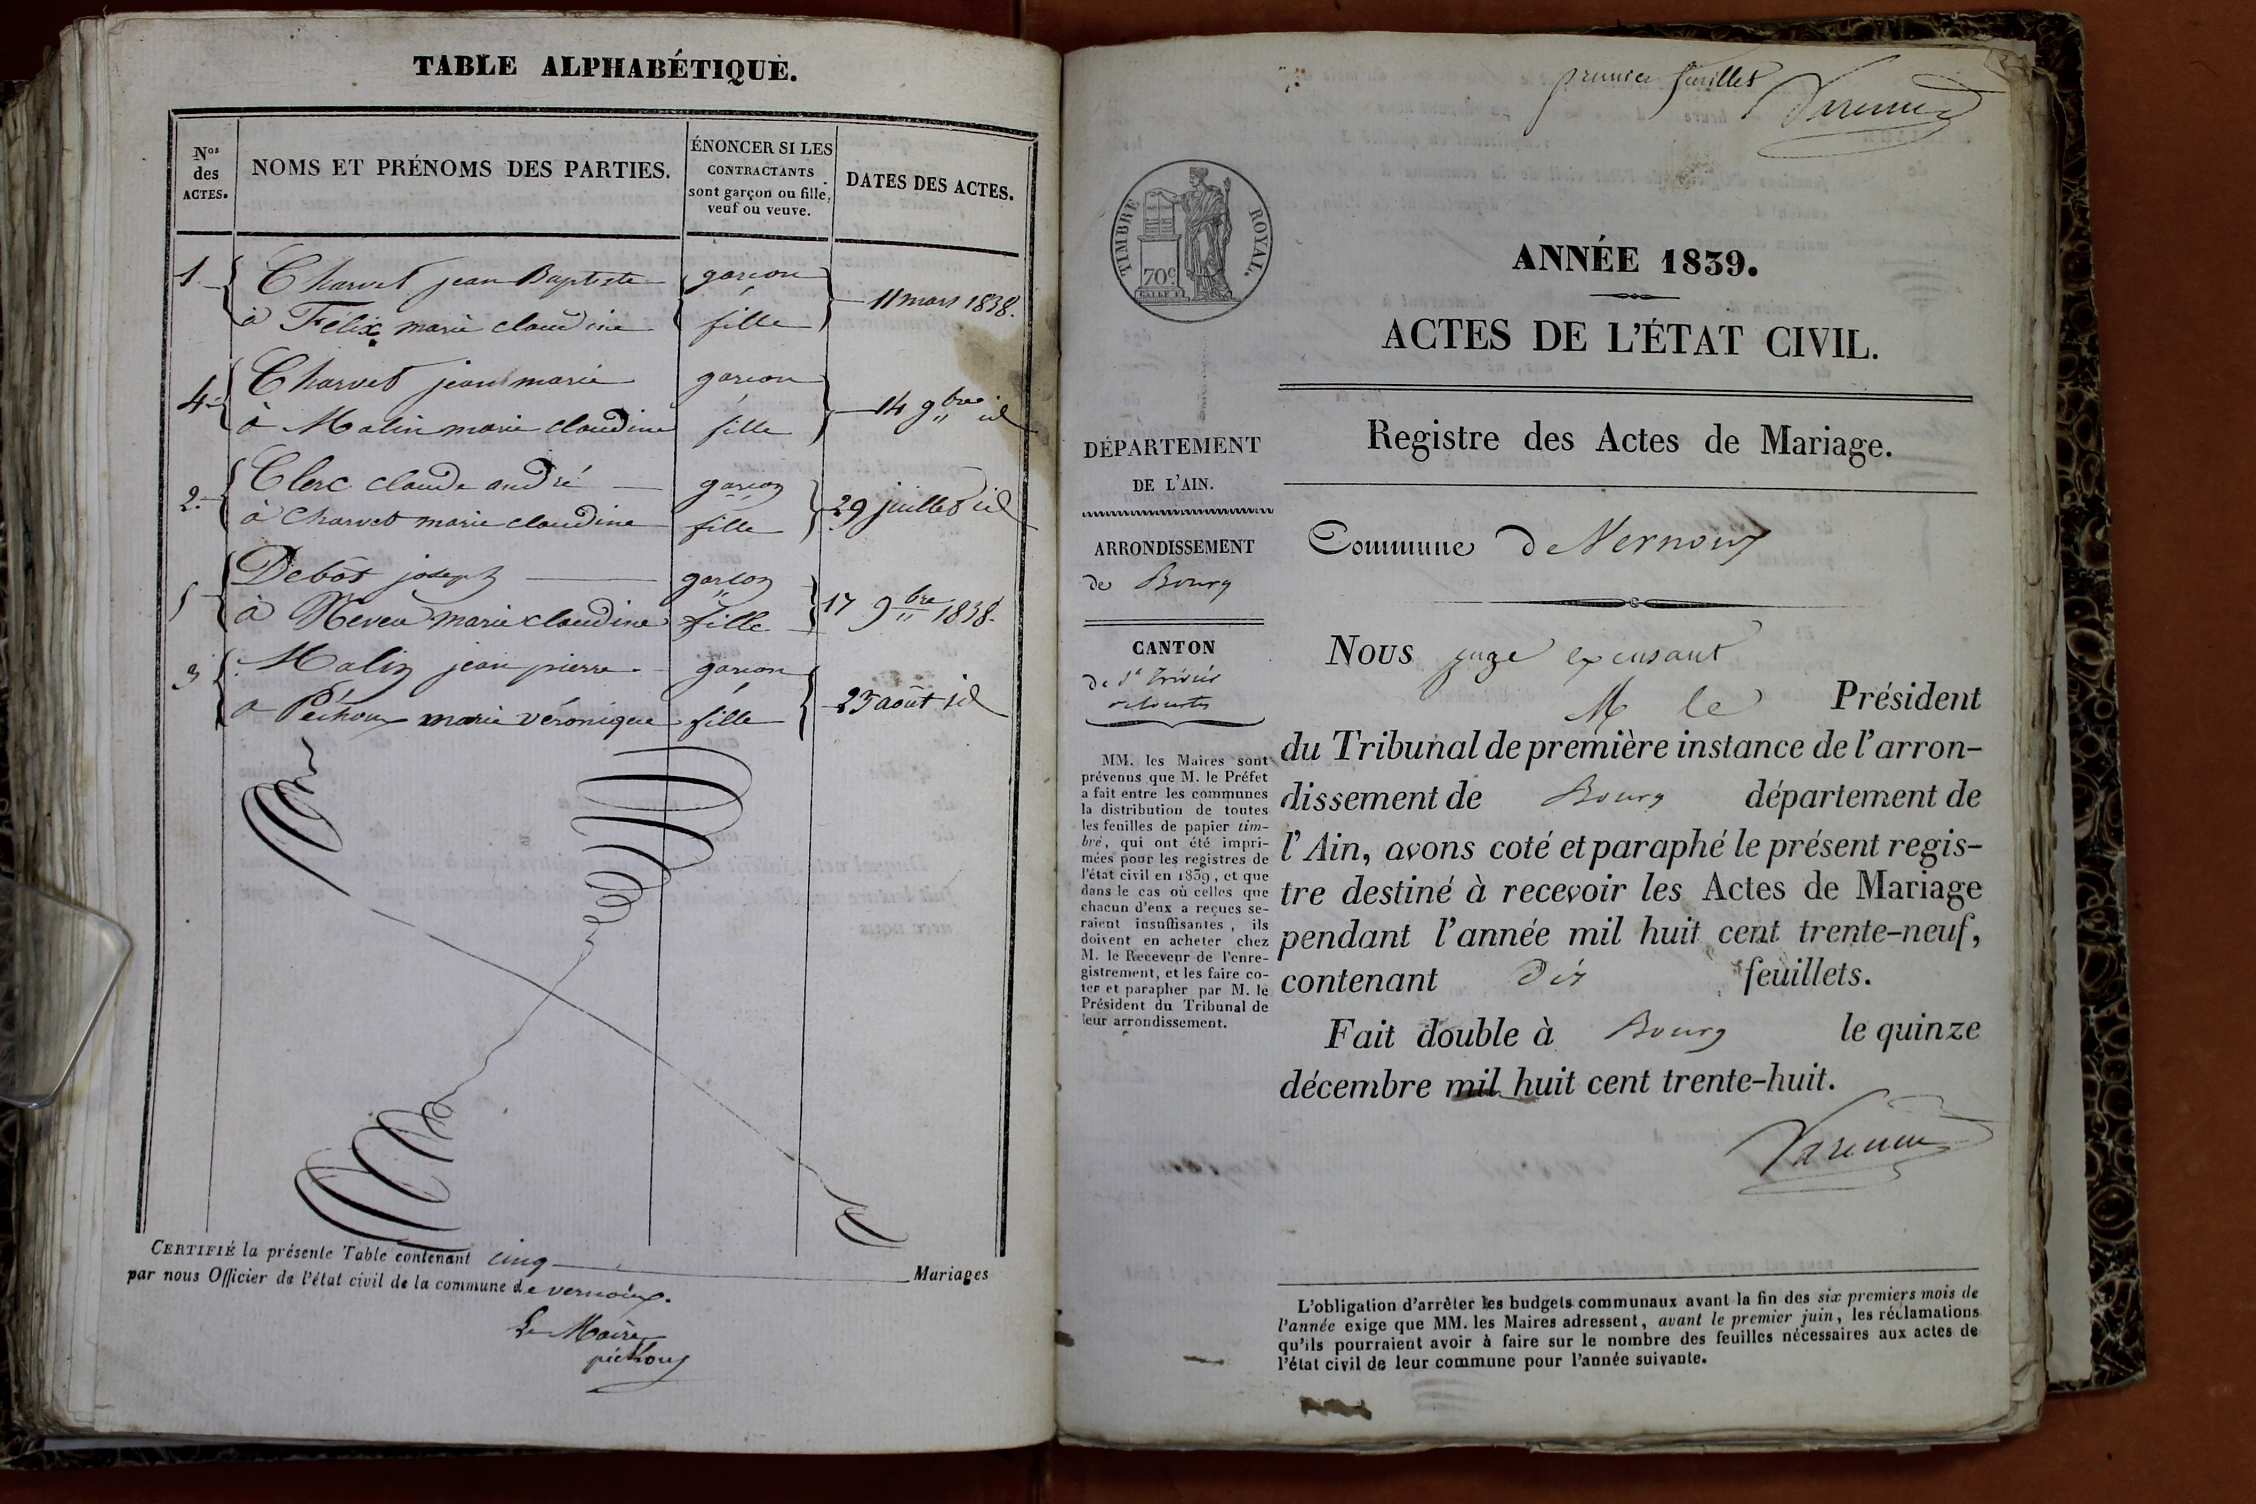 TABLE ALPHABÉTIQUE.
Nos des ACTES.
NOMS ET PRÉNOMS DES PARTIES.
ÉNONCER SI LES
CONTRACTANTS
sont garçon ou fille,
veuf ou veuve.
DATES DES ACTES.
1 Charvet jean Baptiste garçon
à Félix marie claudine fille
11 mars 1838.
4 Charvet jean marie garçon
à Malin marie claudine fille
14 9bre id
2 Clerc claude andré garçon
à Charvet marie claudine fille
29 juillet id
5 Debost joseph garçon
à Neveu marie claudine fille
17 9bre 1838.
3 Malin jean pierre garçon
a Péchoux marie véronique fille
25 août id
CERTIFIÉ la présente Table contenant cinq Mariages
par nous Officier de l'état civil de la commune de vernoux.
Le Maire
péchoux
premier feuillet
Varenne
TIMBRE ROYAL.
70c
ANNÉE 1839.
ACTES DE L'ÉTAT CIVIL.
Registre des Actes de Mariage.
DÉPARTEMENT
DE L'AIN.
ARRONDISSEMENT
de Bourg
CANTON
de St Trivier
de Courtes
MM. les Maires sont
prévenus que M. le Préfet
a fait entre les communes
la distribution de toutes
les feuilles de papier tim-
bré, qui ont été impri-
mées pour les registres de
l'état civil en 1839, et que
dans le cas où celles que
chacun d'eux a reçues se-
raient insuffisantes, ils
doivent en acheter chez
M. le Receveur de l'enre-
gistrement, et les faire co-
ter et parapher par M. le
Président du Tribunal de
leur arrondissement.
Commune de Vernoux
NOUS juge excusant
M le Président
du Tribunal de première instance de l'arron-
dissement de Bourg département de
l'Ain, avons coté et paraphé le présent regis-
tre destiné à recevoir les Actes de Mariage
pendant l'année mil huit cent trente-neuf,
contenant dix feuillets.
Fait double à Bourg le quinze
décembre mil huit cent trente-huit.
Varenne
L'obligation d'arrêter les budgets communaux avant la fin des six premiers mois de
l'année exige que MM. les Maires adressent, avant le premier juin, les réclamations
qu'ils pourraient avoir à faire sur le nombre des feuilles nécessaires aux actes de
l'état civil de leur commune pour l'année suivante.